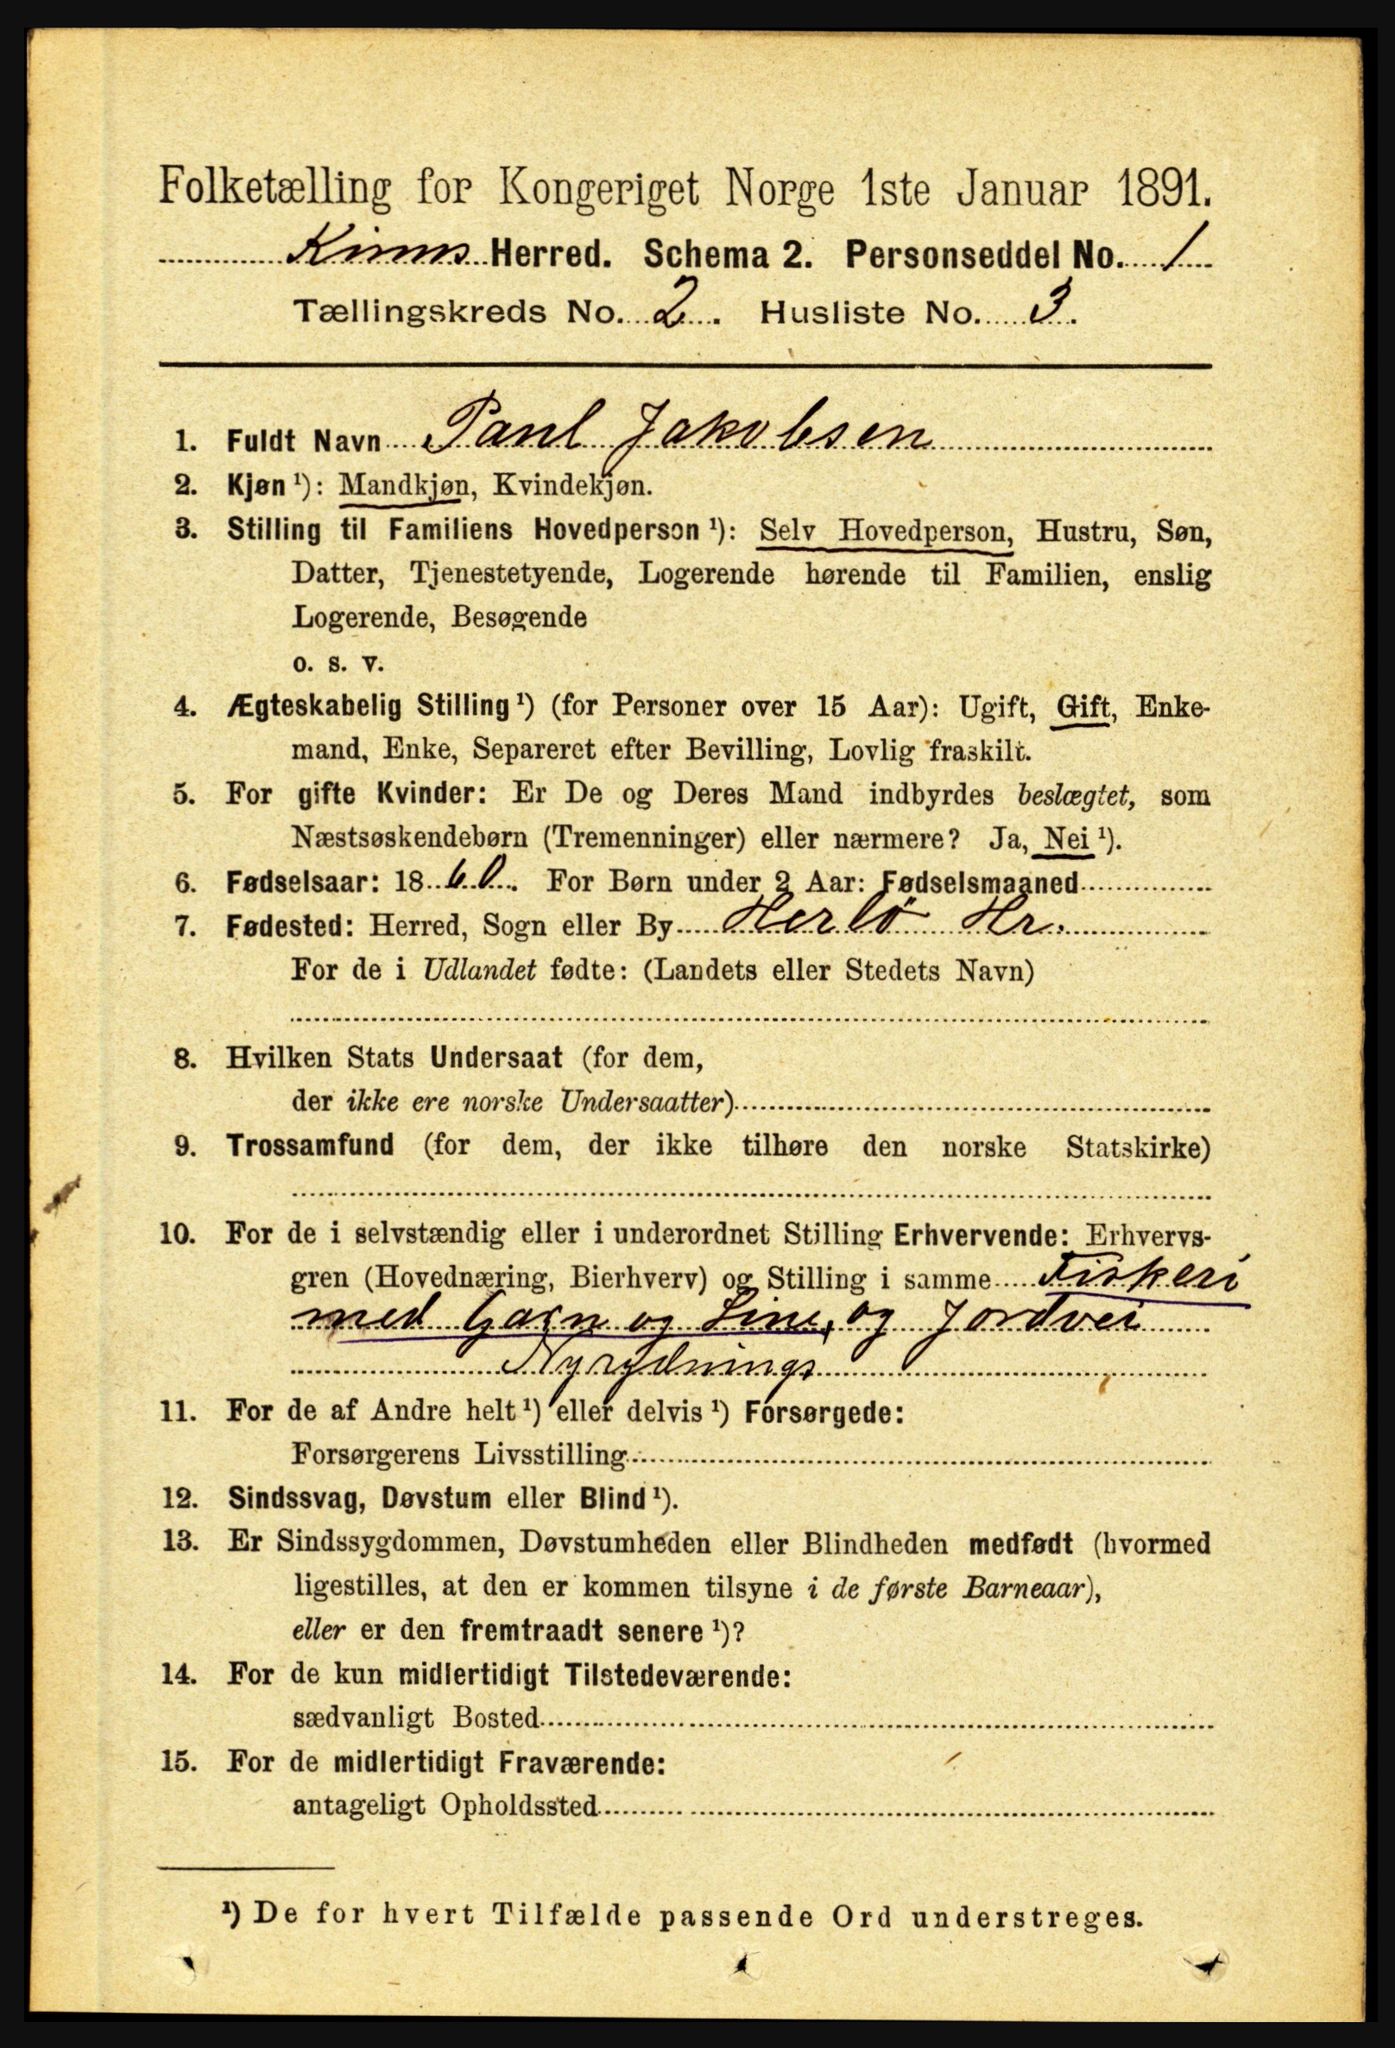 Folketælling for Kongeriget Norge 1ste Januar 1891.
Kinns Herred. Schema 2. Personseddel No. 1
Tællingskreds No. 2. Husliste No. 3.
1. Fuldt Navn Paul Jakobsen
2. Kjøn ¹): Mandkjøn, Kvindekjøn.
3. Stilling til Familiens Hovedperson ¹): Selv Hovedperson, Hustru, Søn,
Datter, Tjenestetyende, Logerende hørende til Familien, enslig
Logerende, Besøgende
o. s. v.
4. Ægteskabelig Stilling ¹) (for Personer over 15 Aar): Ugift, Gift, Enke-
mand, Enke, Separeret efter Bevilling, Lovlig fraskilt.
5. For gifte Kvinder: Er De og Deres Mand indbyrdes beslægtet, som
Næstsøskendebørn (Tremenninger) eller nærmere? Ja, Nei ¹).
6. Fødselsaar: 1860. For Børn under 2 Aar: Fødselsmaaned
7. Fødested: Herred, Sogn eller By Herlö Hr.
For de i Udlandet fødte: (Landets eller Stedets Navn)
8. Hvilken Stats Undersaat (for dem,
der ikke ere norske Undersaatter)
9. Trossamfund (for dem, der ikke tilhøre den norske Statskirke)
10. For de i selvstændig eller i underordnet Stilling Erhvervende: Erhvervs-
gren (Hovednæring, Bierhverv) og Stilling i samme Fiskeri
med Garn og Line, og Jordvei
Nyrydnings
11. For de af Andre helt ¹) eller delvis ¹) Forsørgede:
Forsørgerens Livsstilling
12. Sindssvag, Døvstum eller Blind ¹).
13. Er Sindssygdommen, Døvstumheden eller Blindheden medfødt (hvormed
ligestilles, at den er kommen tilsyne i de første Barneaar),
eller er den fremtraadt senere ¹)?
14. For de kun midlertidigt Tilstedeværende:
sædvanligt Bosted
15. For de midlertidigt Fraværende:
antageligt Opholdssted
¹) De for hvert Tilfælde passende Ord understreges.